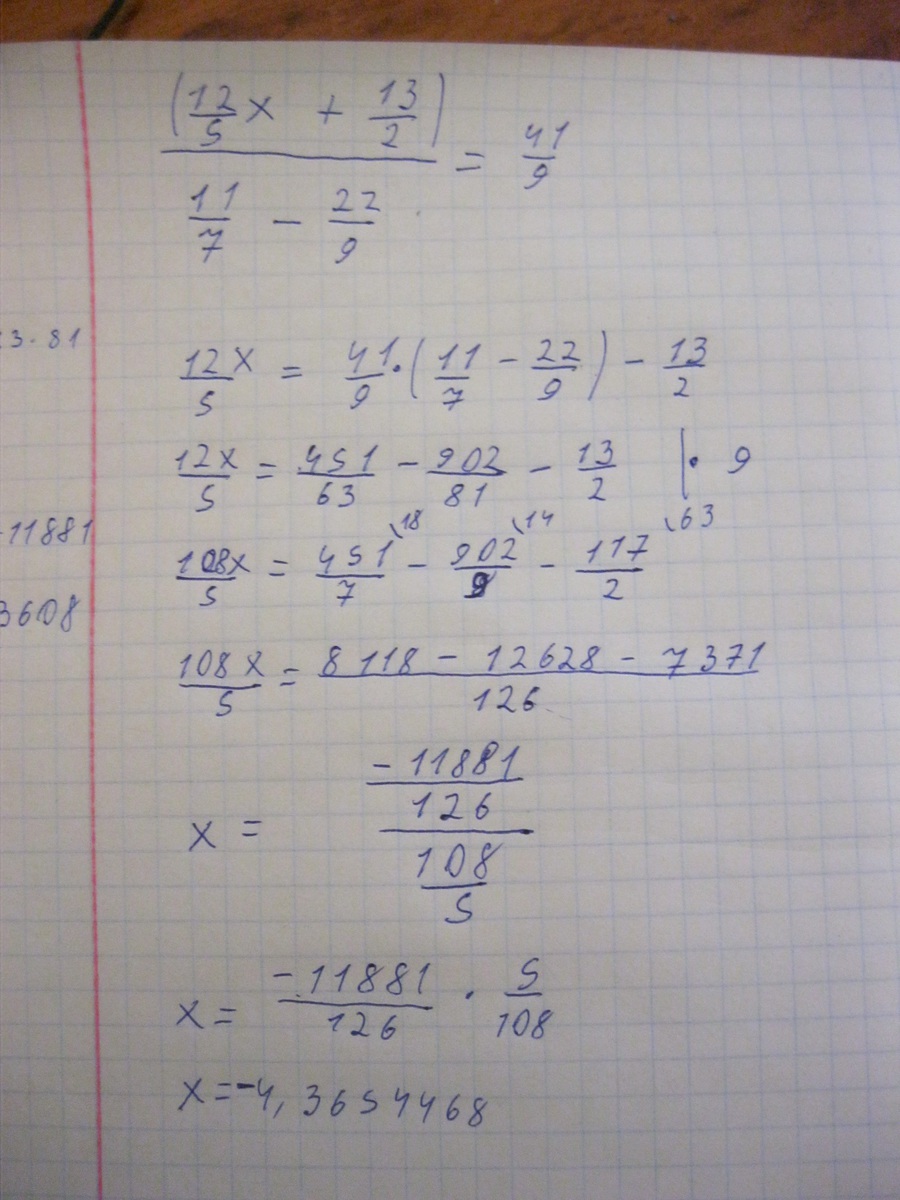 (12/5 x + 13/2) / (11/7 - 22/9) = 41/9
3·81
12x/5 = 41/9 · (11/7 - 22/9) - 13/2
12x/5 = 451/63 - 902/81 - 13/2 |· 9
-11881
108x/5 = 451\18/7 - 902\14/9 - 117\63/2
3608
108x/5 = (8118 - 12628 - 7371)/126
x = (-11881/126)/(108/5)
x = -11881/126 · 5/108
x = -4,3654468